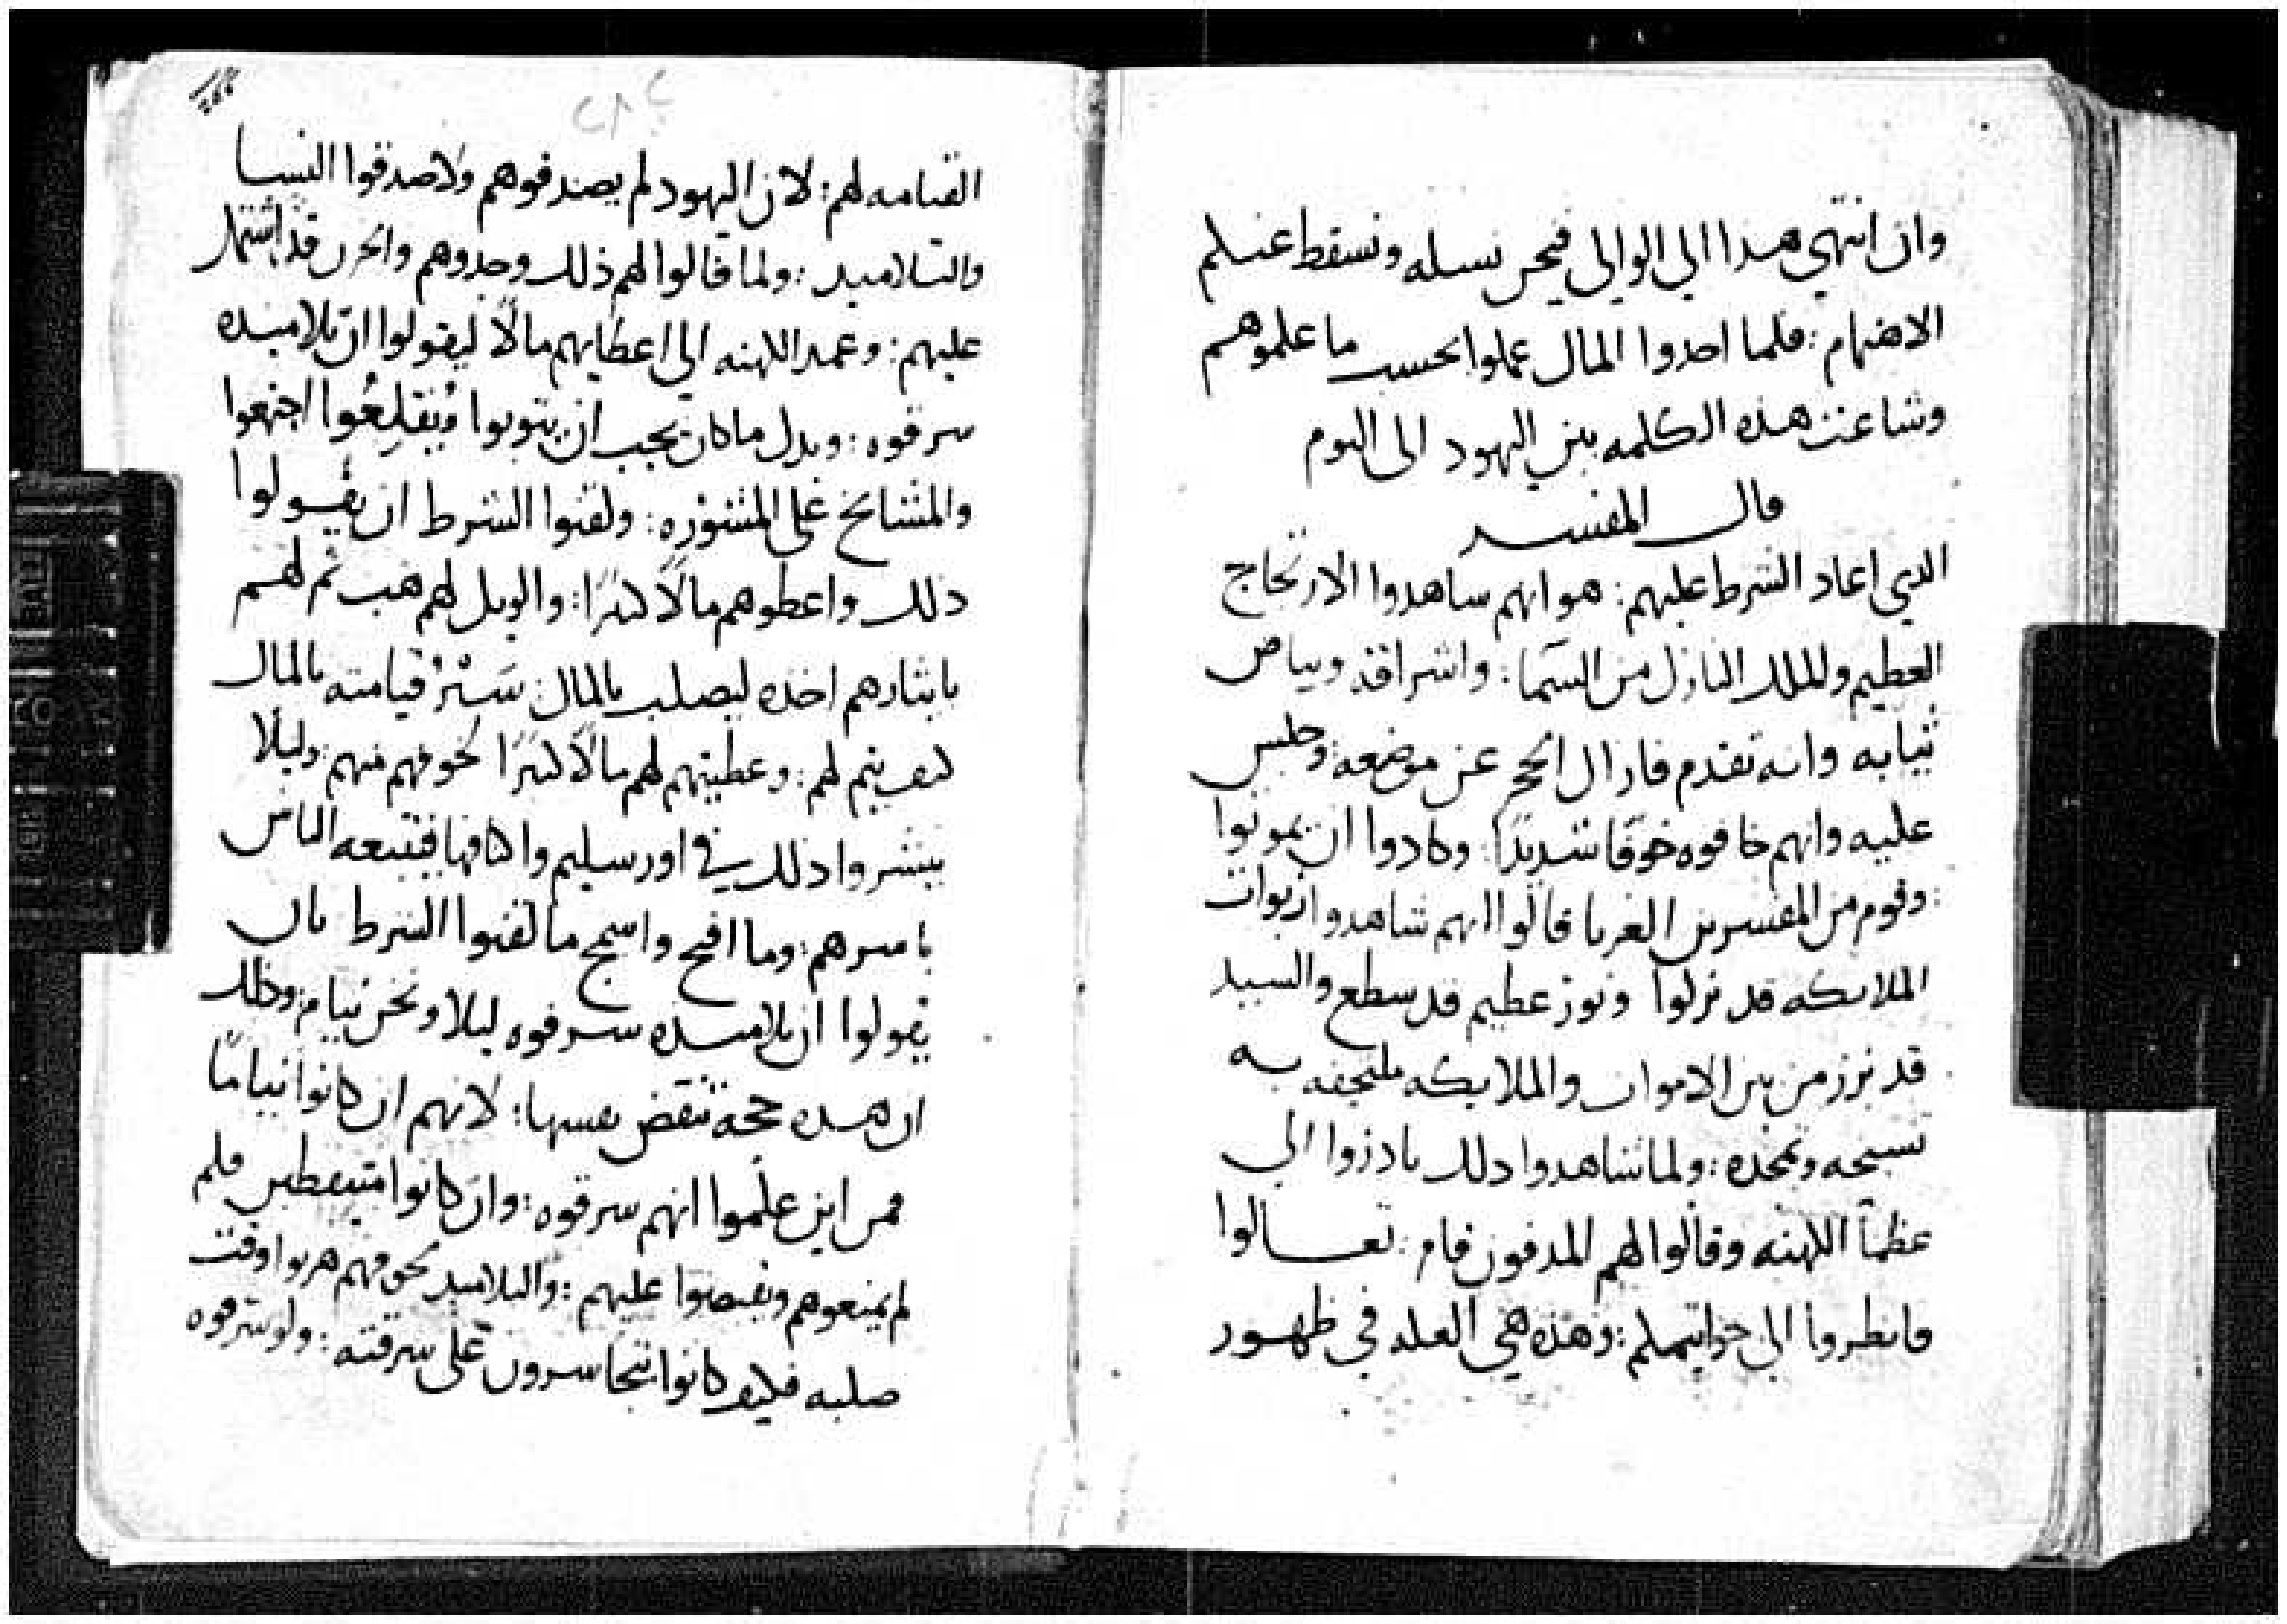 وان انتهي هدا الي الوالي فنحن نسله ونسقط عنكم
الاهتمام : فلما اخدوا المال عملوا بحسب ما علموهم
وشاعت هذه الكلمه بين اليهود الى اليوم
قال المفسر
الدي اعاد الشرط عليهم : هو انهم شاهدوا الارتجاج
العظيم والملاك النازل من السما : واشراقه وبياض
ثيابه وانه تقدم فازال الحجر عن موضعه وجلس
عليه وانهم خافوه خوفا شديدًا : وكادوا ان يموتوا
: وقوم من المفسرين الغربا قالوا انهم شاهدوا ربوات
الملايكه قد نزلوا ونور عظيم قد سطع والسيد
قد برز من بين الاموات والملايكه ملتحفه به
تسبحه وتمجده : ولما شاهدوا دلك بادروا الي
عظما الكهنه وقالوا لهم المدفون قام : تعالوا
فانظروا الي خواتيمكم : وهذه هي العله في ظهور
القيامه لهم : لان اليهود لم يصدقوهم ولا صدقوا النسا
والتلاميد : ولما قالوا لهم ذلك وجدوهم والحزن قد اشتمل
عليهم : وعمد الكهنه الي اعطايهم مالًا ليقولوا ان تلاميده
سرقوه : وبدل ما كان يجب ان يتوبوا ويقلعوا اجتمعوا
والمشايخ على المشوره : ولقنوا الشرط ان يقولوا
دلك واعطوهم مالًا كثيرًا : والويل لهم هب تم لهم
بايثارهم اخذه ليصلب بالمال : سَتْرُ قيامته بالمال
كيف يتم لهم : وعطيتهم لهم مالًا كثيرًا لخوفهم منهم : وليلا
ينشروا ذلك في اورسليم واكنافها فيتبعه الناس
باسرهم : وما اقبح واسمج ما لقنوا الشرط بان
يقولوا ان تلاميده سرقوه ليلا ونحن نيام : وذلك
ان هده حجة تنقض نفسها : لانهم ان كانوا نيامًا
فمن اين علموا انهم سرقوه : وان كانوا متيقظين فلم
لم يمنعوهم ويقبضوا عليهم : والتلاميد لخوفهم هربوا وقت
صلبه فكيف كانوا يتجاسرون على سرقته : ولو سرقوه